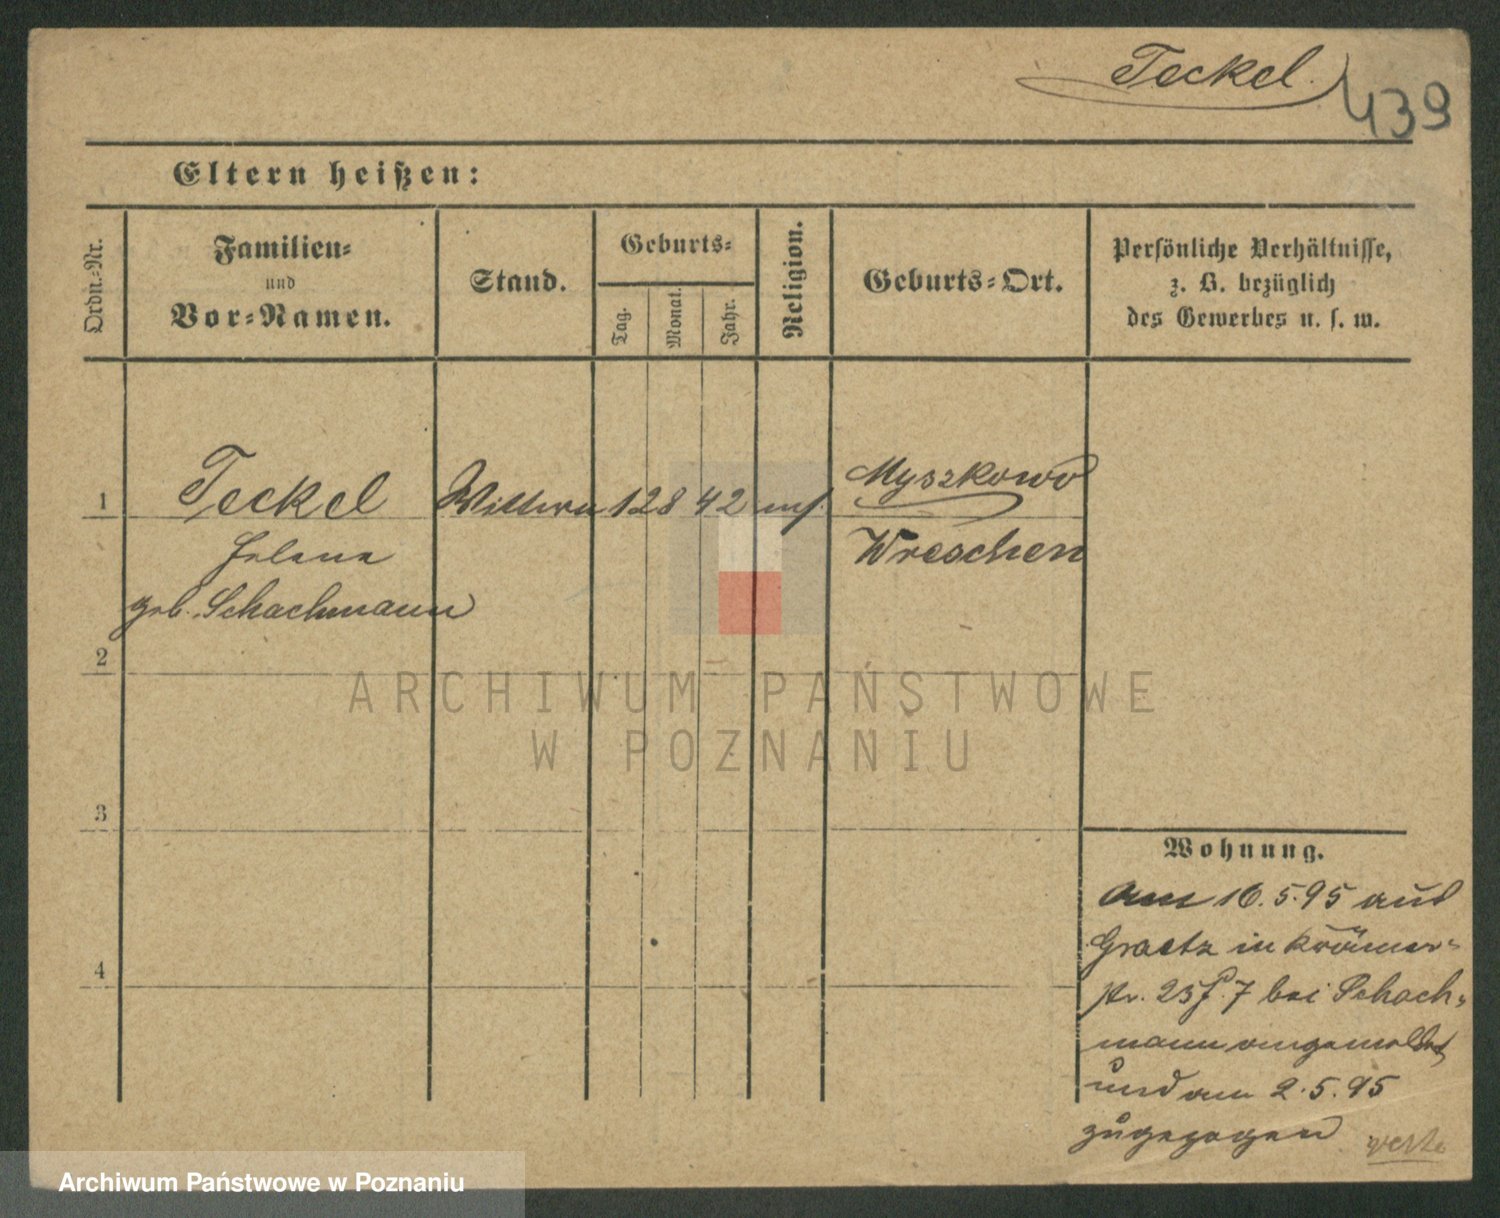 Teckel
439
Eltern heißen:
Ordn.-Nr.
Familien-
und
Vor-Namen.
Stand.
Geburts-
Tag.
Monat.
Jahr.
Religion.
Geburts-Ort.
Persönliche Verhältnisse,
z. B. bezüglich
des Gewerbes u. s. w.
1 Teckel Wittwe 12 8 42 Myszkowo
Helene Wreschen
geb. Schachmann
2
3
4
Wohnung.
am 16.5.95 aus
Graetz in Krämer-
str. 23 7 bei Schach-
mann angemeldet
und am 2.5.95
zugezogen
ARCHIWUM PAŃSTWOWE
W POZNANIU
Archiwum Państwowe w Poznaniu